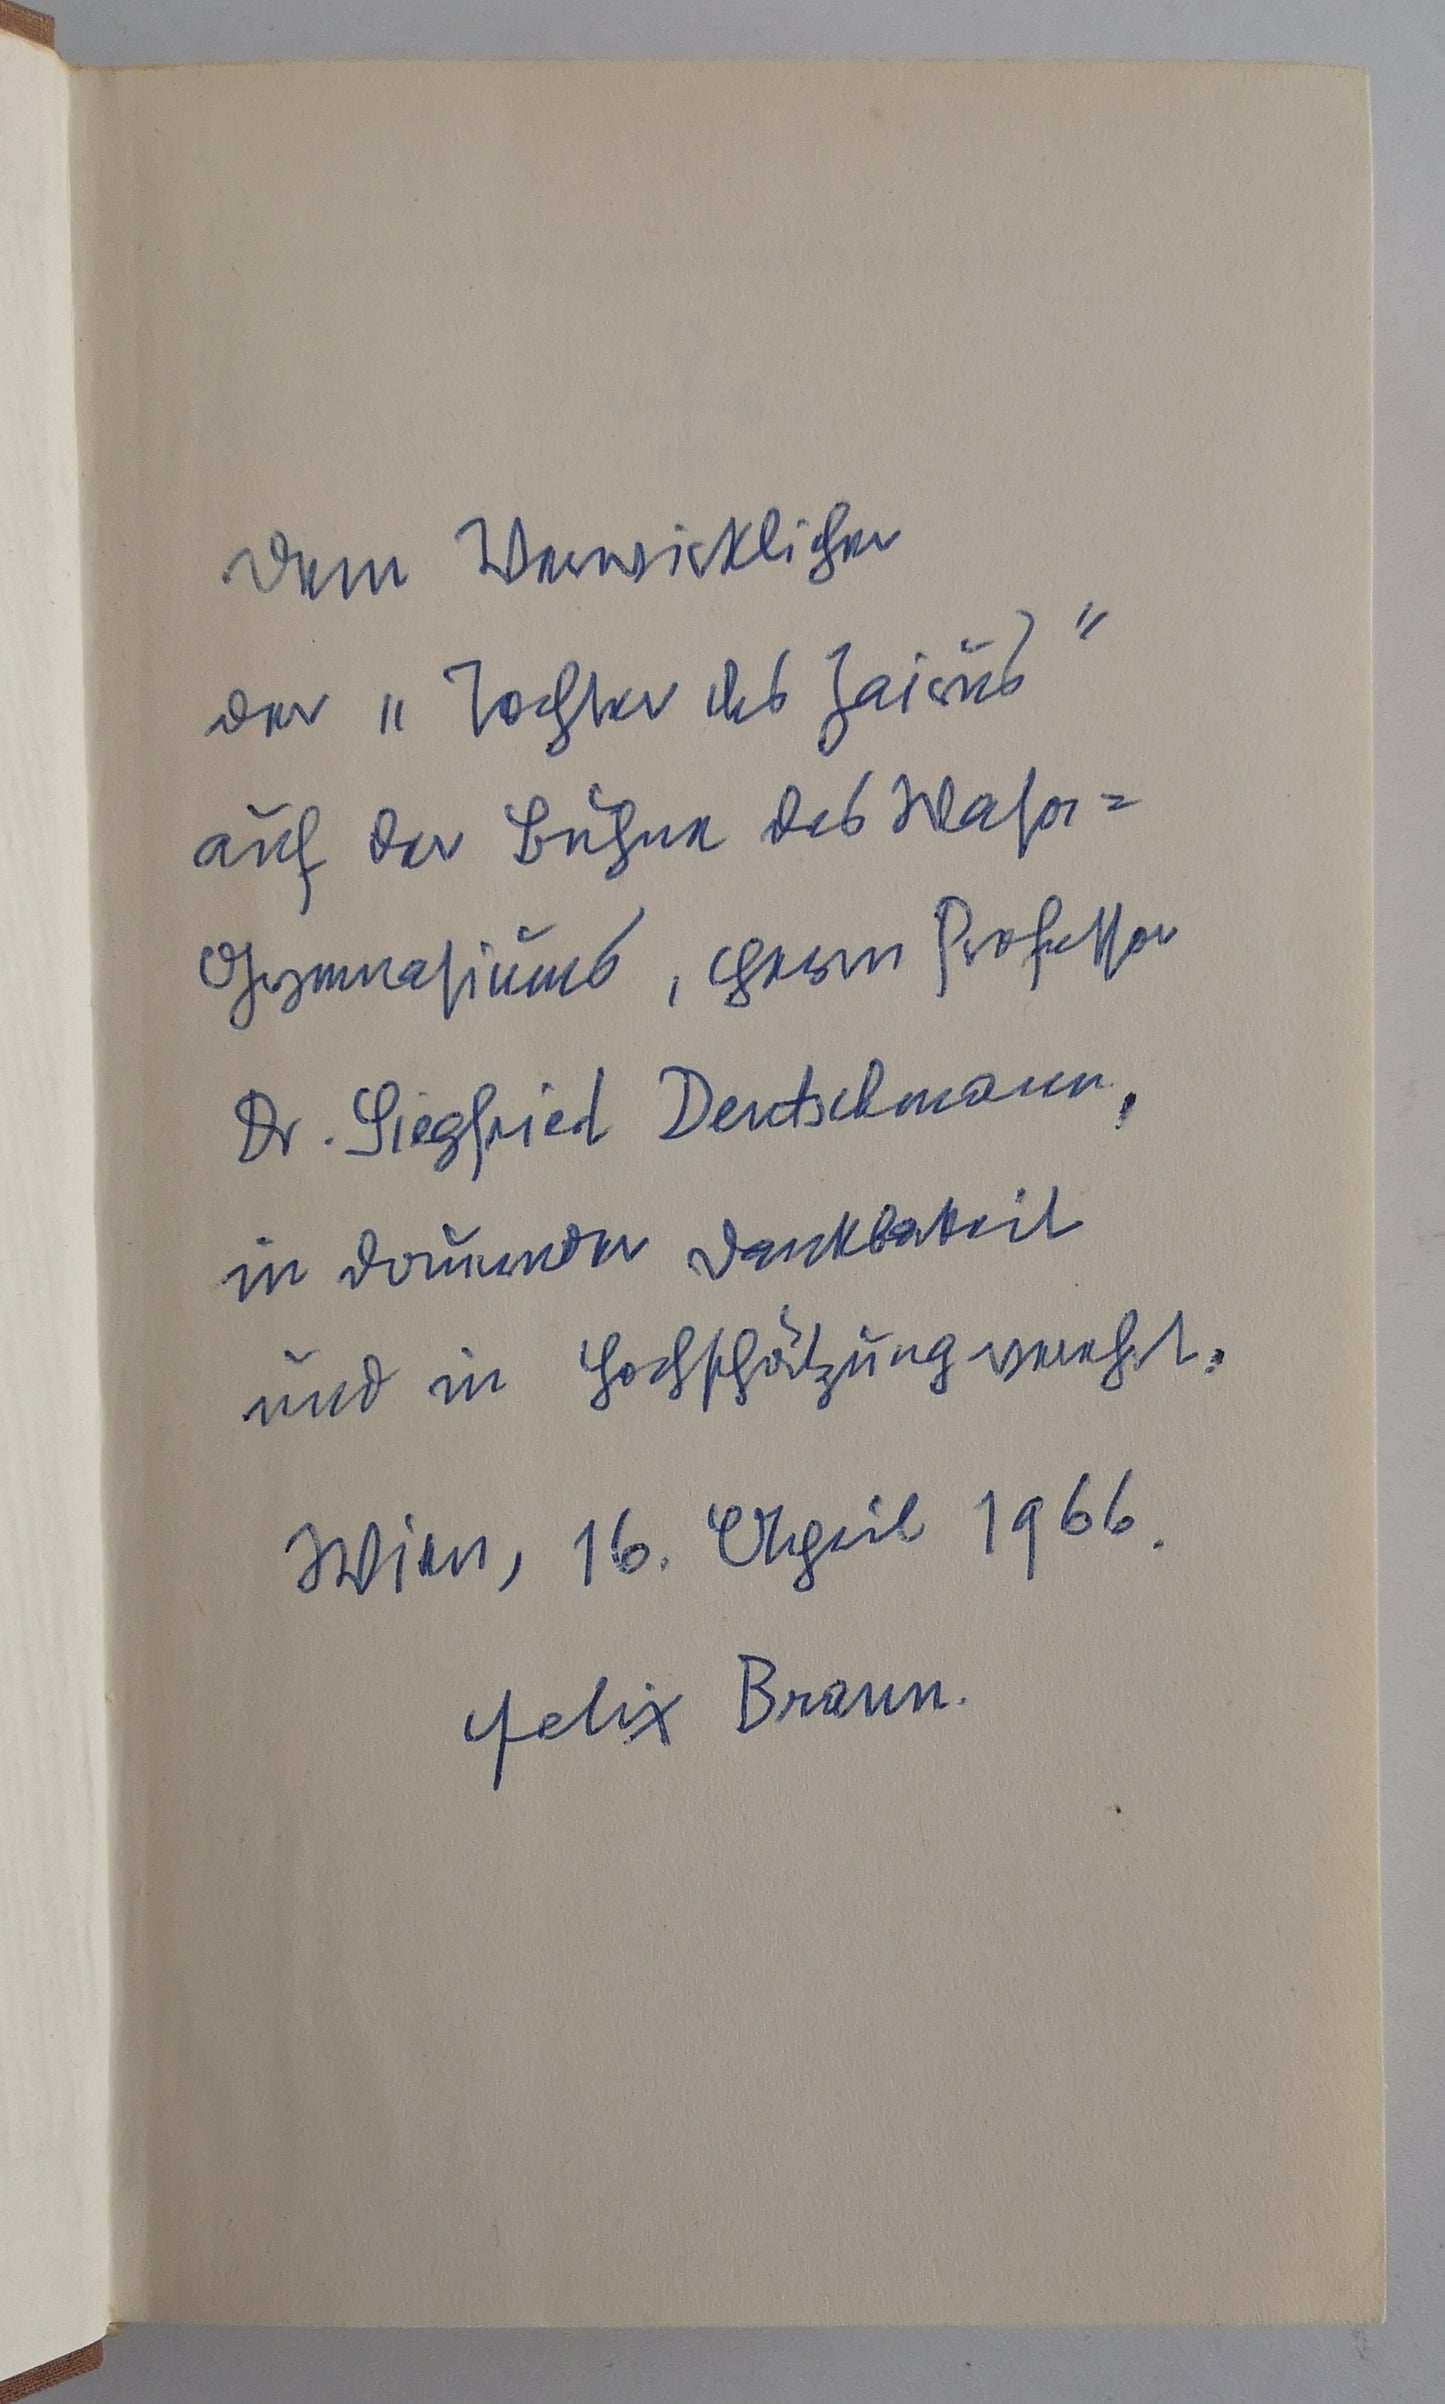 Dem Verwirklicher
der "Tochter des Jairus"
auf der Bühne des Wasa=
Gymnasiums, Herrn Professor
Dr. Siegfried Deutschmann,
in dauernder Dankbarkeit
und in Hochschätzung verehrt.
Wien, 16. April 1966.
Felix Braun.